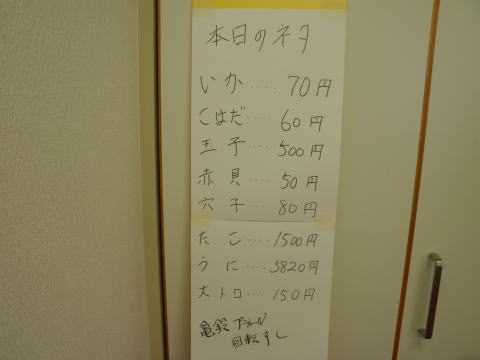 本日のネタ
いか····70円
こはだ····60円
玉子····500円
赤貝····50円
穴子····80円
たこ····1500円
うに····3820円
大トロ····150円
回転すし